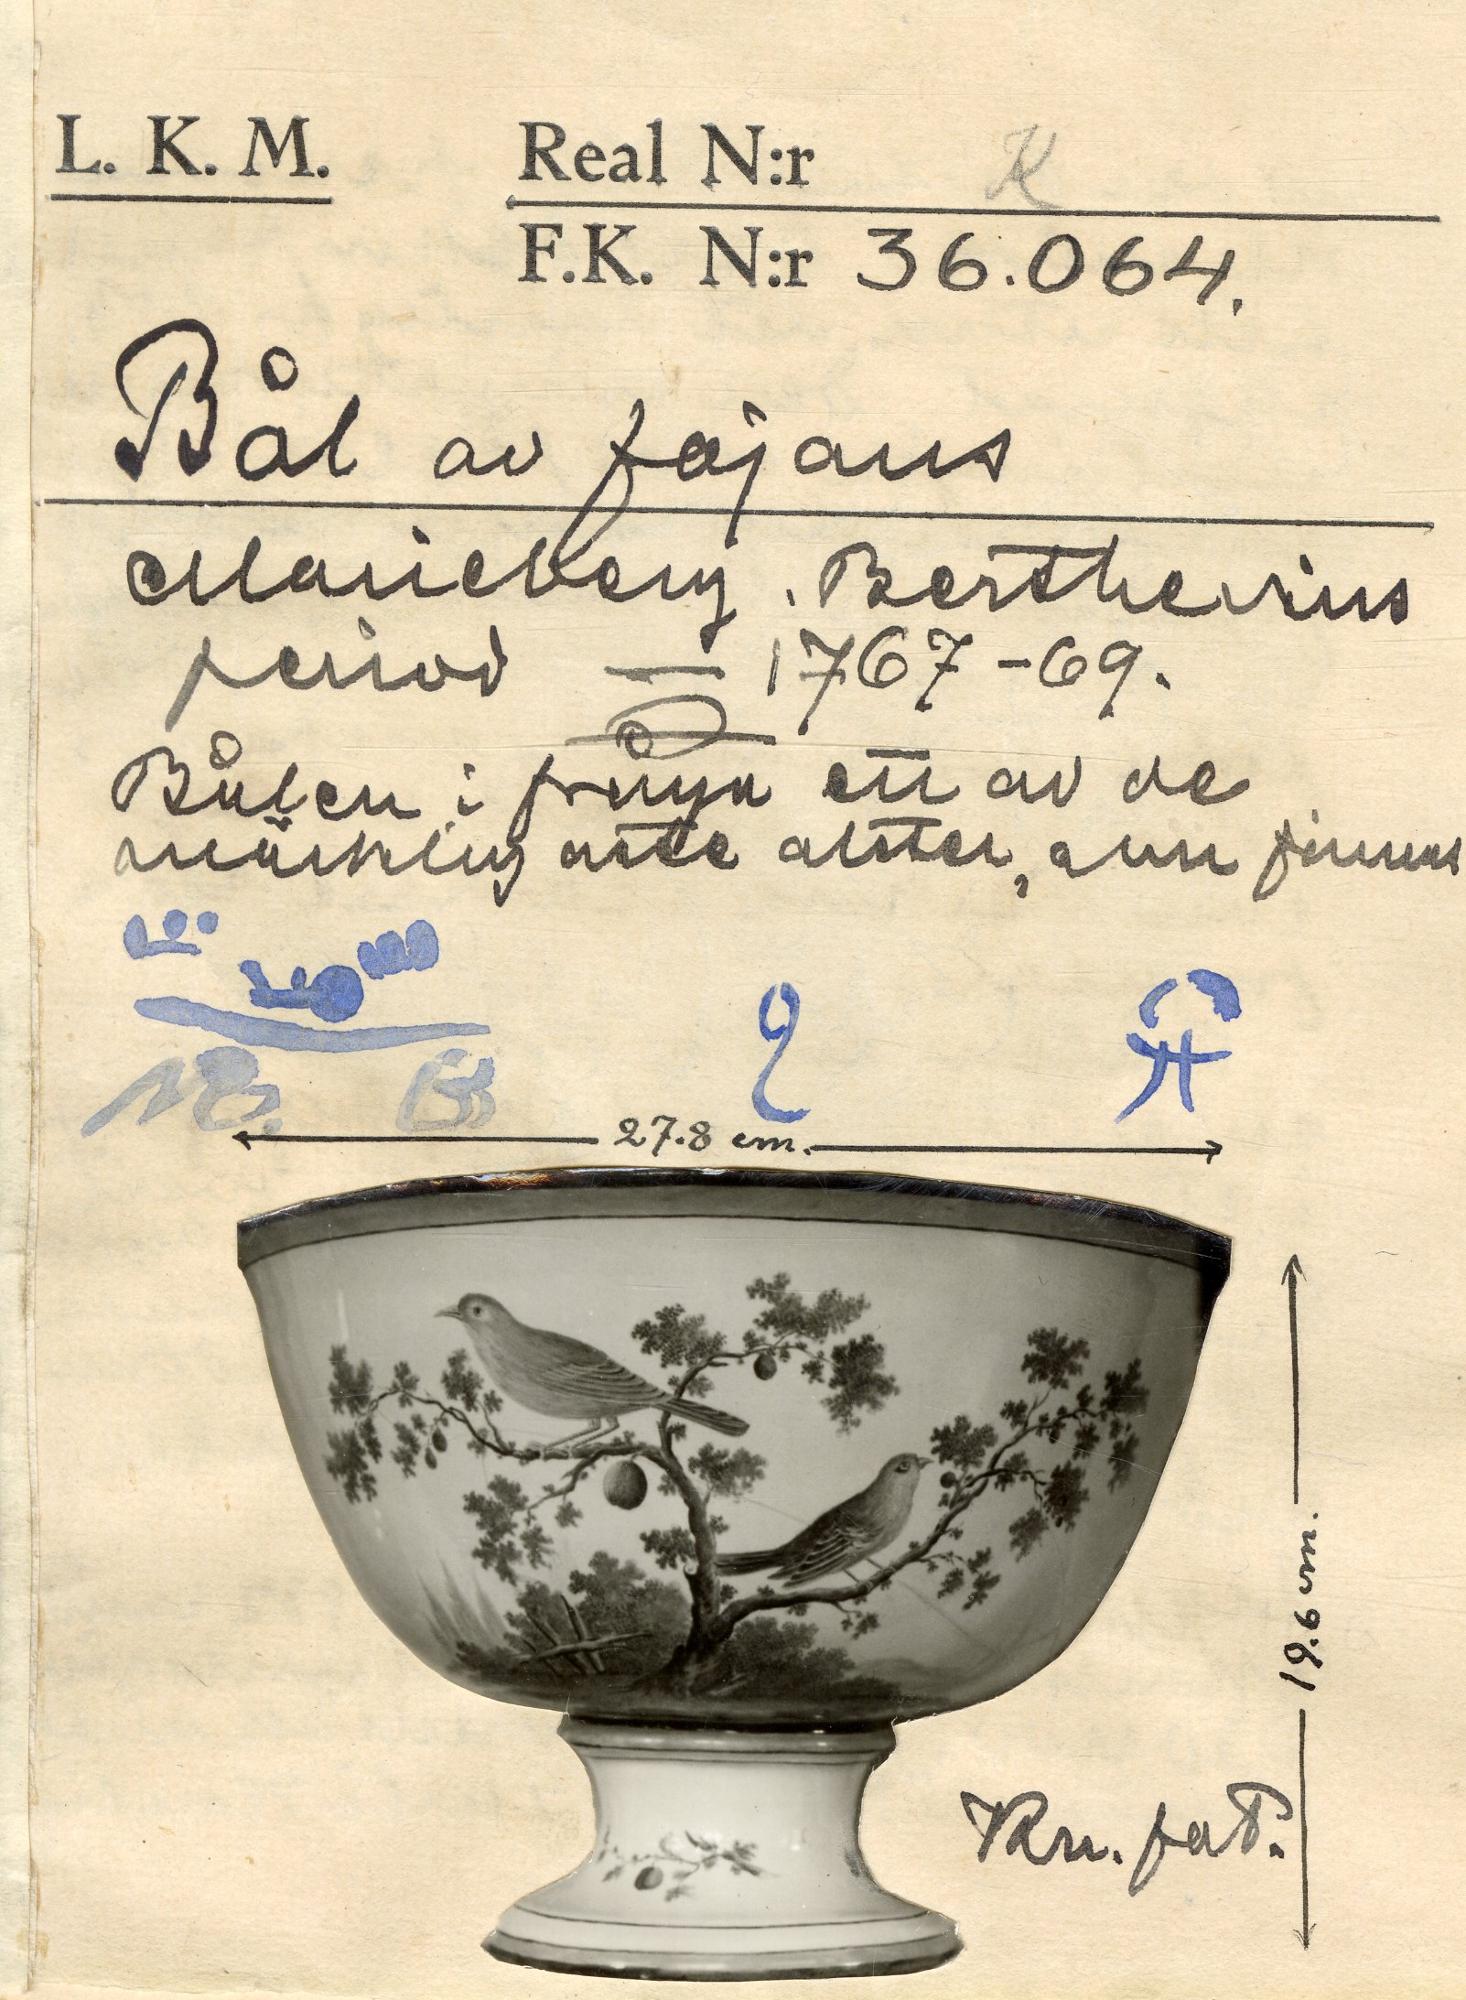 L. K. M.
Real N:r K
F.K. N:r 36.064.
Bål av fajans
Marieberg. Berthevins
period — 1767-69.
Bålen i fråga ett av de
märkligaste alster, som finnas
27.8 cm.
19.6 cm.
Kn. fat.